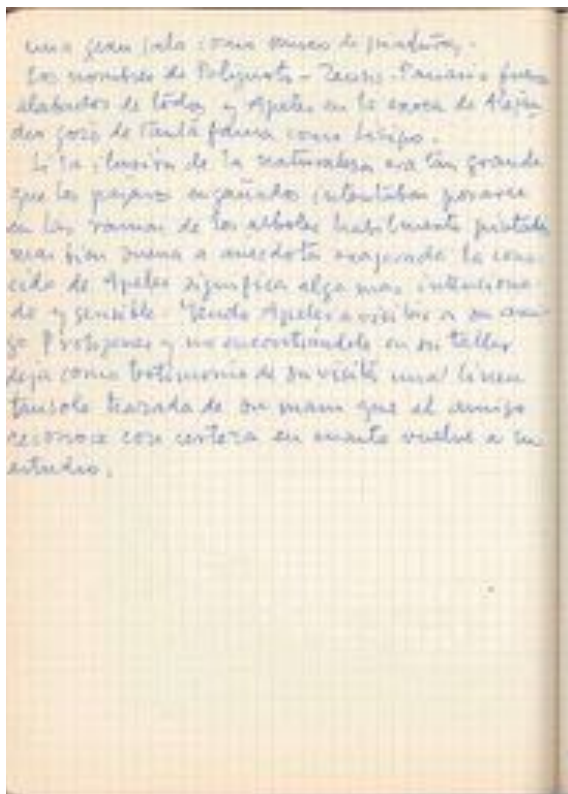 una gran sala como museo de pinturas.
Los nombres de Polignoto - Zeuxis - Parrasio fueron
alabados de todos y Apeles en la epoca de Alejan
dro gozó de tanta fama como Lisipo.
Si la ilusión de la naturaleza era tan grande
que los pajaros engañados intentaban posarse
en las ramas de los arboles habilmente pintados
mas bien suena a anecdota exagerada la cono-
cida de Apeles significa algo mas intenciona-
do y sensible. Yendo Apeles a visitar a su ami-
go Protogenes y no encontrándole en su taller
deja como testimonio de su visita una linea
tansolo trazada de su mano que el amigo
reconoce con certeza en cuanto vuelve a su
estudio.